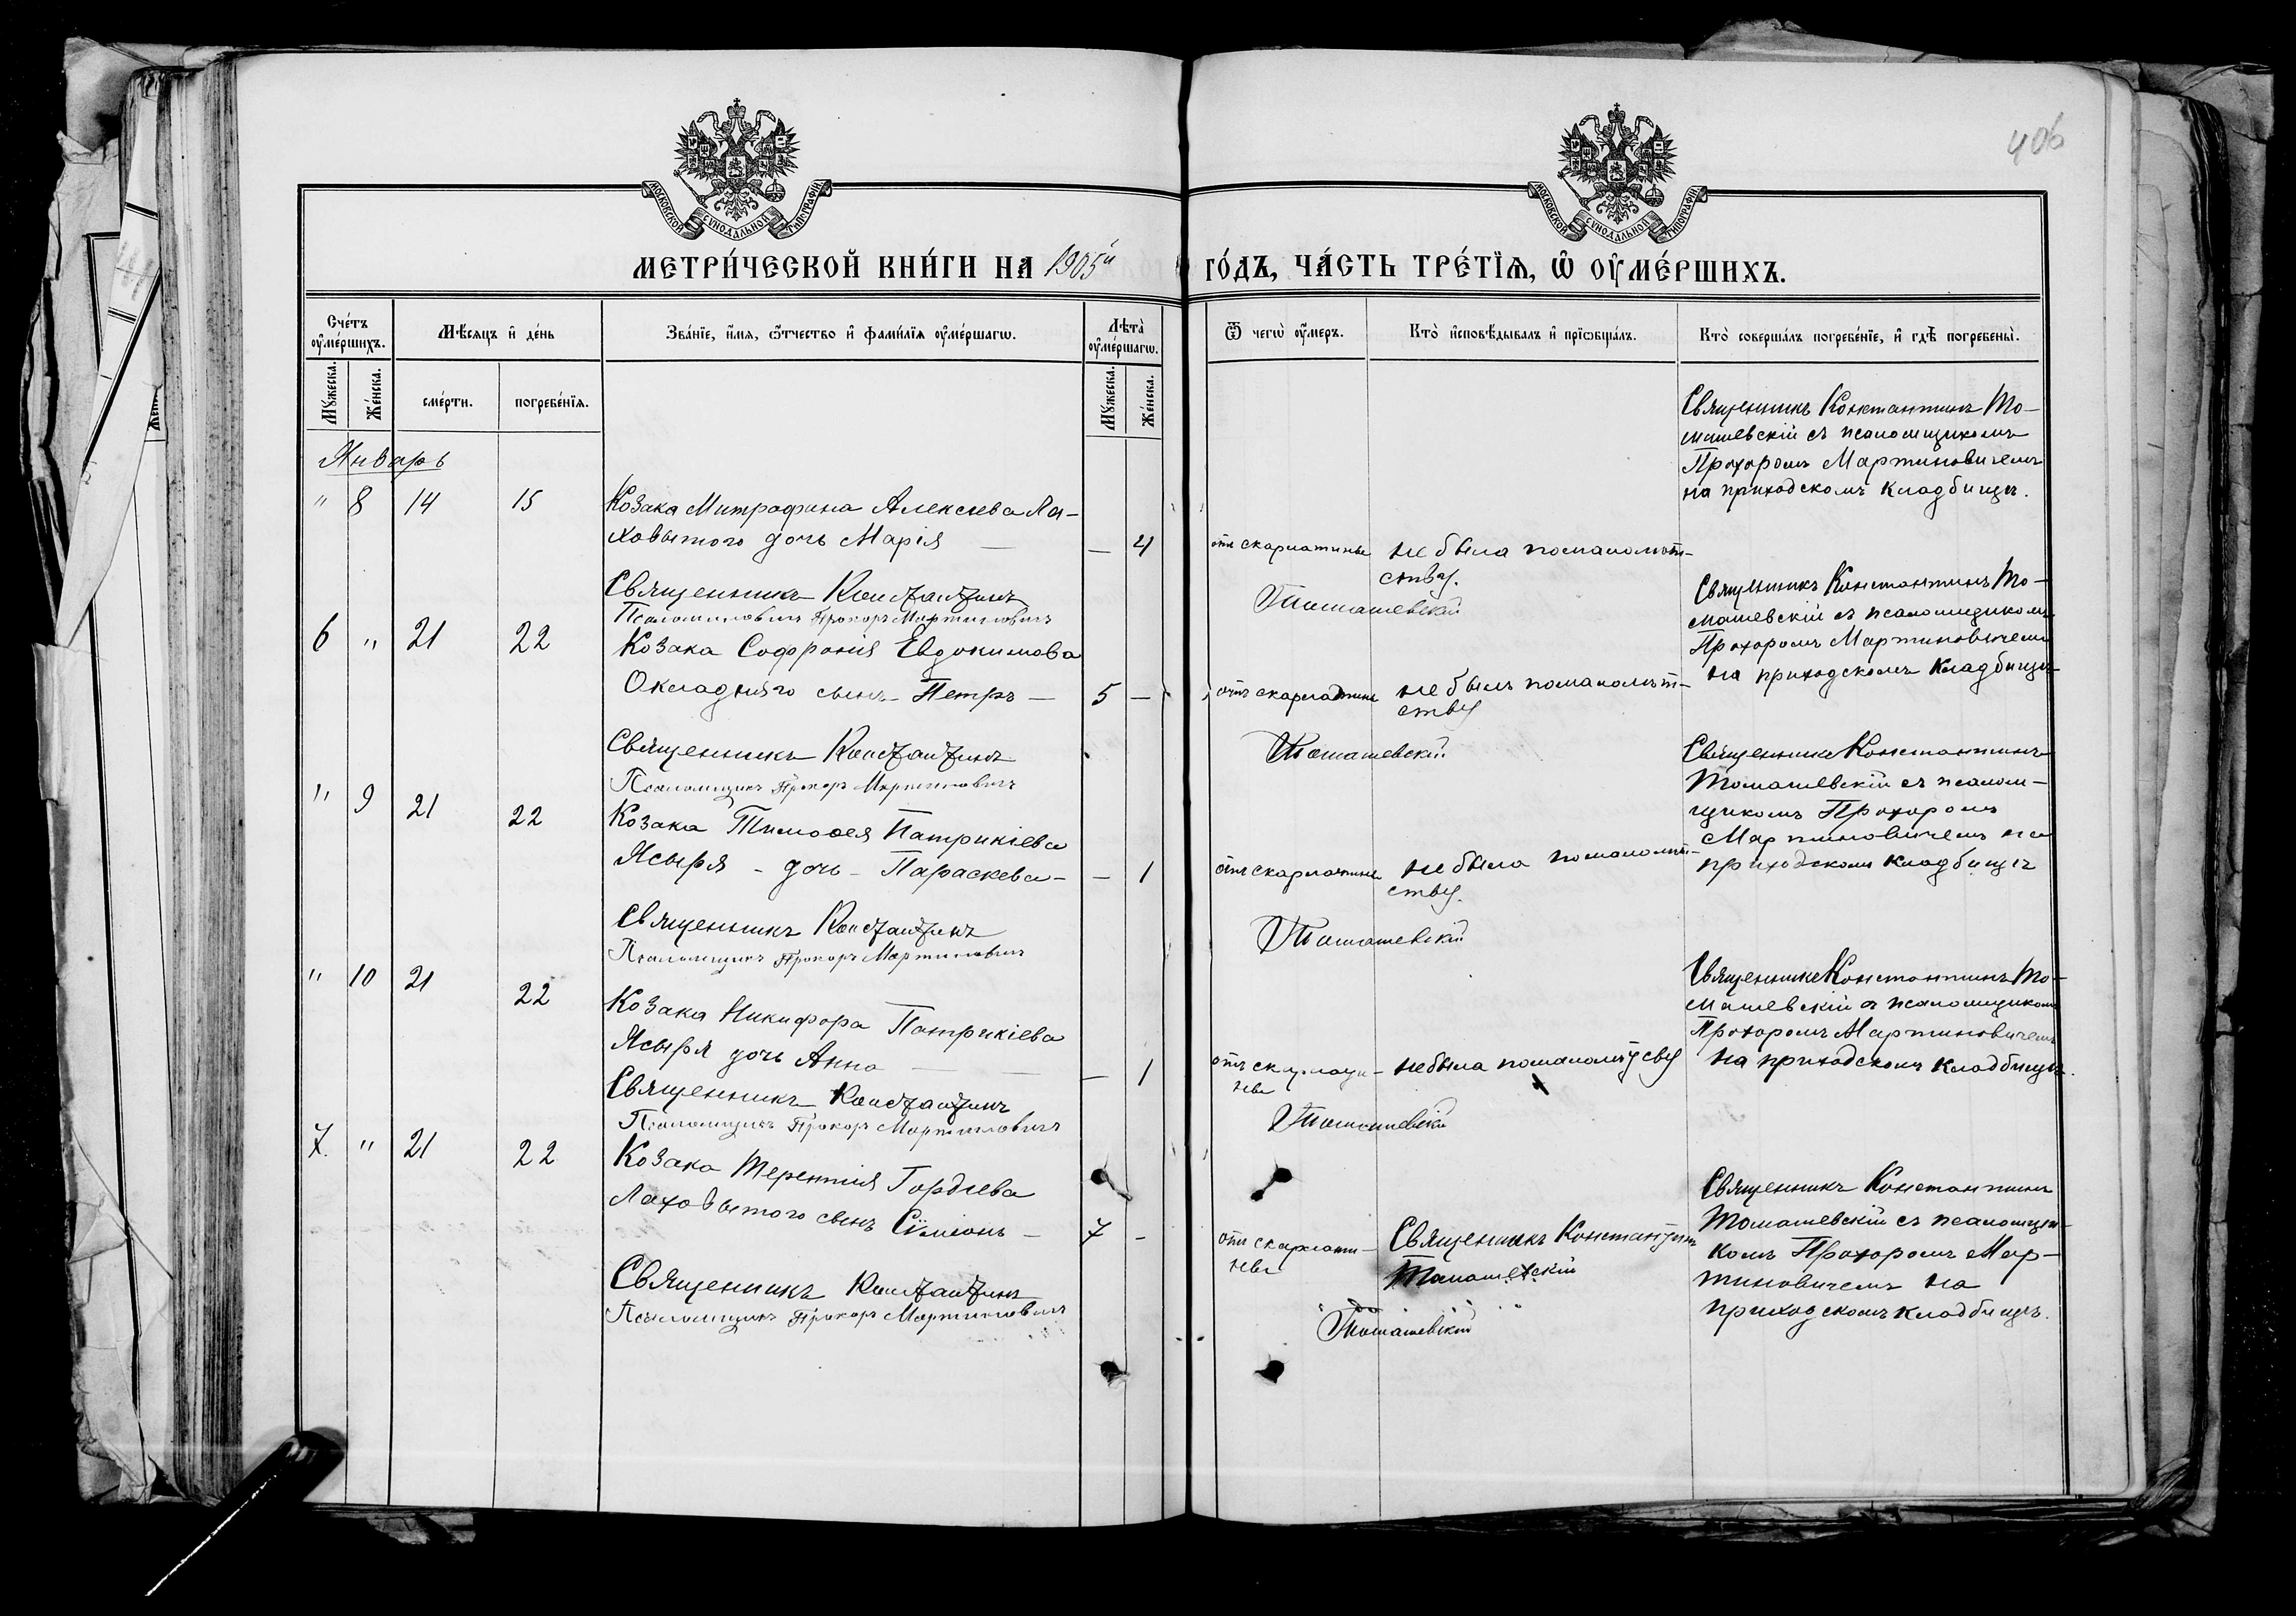 406
МОСКОВСКОЙ СѴНОДАЛЬНОЙ ТИПОГРАФІИ
МОСКОВСКОЙ СѴНОДАЛЬНОЙ ТИПОГРАФІИ
МЕТРИ́ЧЕСКОЙ КНИ́ГИ НА 1905й ГО́ДЪ, ЧА́СТЬ ТРЕ́ТЇѦ, Ѡ ОУ҆МЕ́РШИХЪ.
Сче́тъ оу҆ме́ршихъ.
Мѣ́сѧцъ и҆ де́нь
Зва́нїе, и҆́мѧ, ѻ҆́тчество и҆ фами́лїѧ оу҆ме́ршагѡ.
Лѣ́та оу҆ме́ршагѡ.
Ѿ чегѡ̀ оу҆́меръ.
Кто̀ и҆сповѣ́дывалъ и҆ прїѡбща́лъ.
Кто̀ соверша́лъ погребе́нїе, и҆ гдѣ̀ погребены̀.
Мꙋ́жеска.
Же́нска.
сме́рти.
погребе́нїѧ.
Мꙋ́жеска.
Же́нска.
Январь
" 8 14 15 Козака Митрофана Алексѣева Ла-
ховытого дочь Марія — — 4
отъ скарлатины
не была по малолѣт-
ству.
Священникъ Константинъ То-
машевскій съ псаломщикомъ
Прохоромъ Мартиновичемъ
на приходскомъ кладбищѣ.
Священникъ Константинъ Томашевскій
Прохоръ Мартиновичъ
6 " 21 22 Козака Софронія Евдокимова
Окладного сынъ - Петръ — 5 —
отъ скарлатины
не былъ по малолѣт-
ству
Священникъ Константинъ То-
машевскій съ псаломщикомъ
Прохоромъ Мартиновичемъ
на приходскомъ кладбищѣ
Священникъ Константинъ Томашевскій
Псаломщикъ Прохоръ Мартиновичъ
" 9 21 22 Козака Тимоѳея Патрикіева
Ясыря - дочь - Параскева - — 1
отъ скарлатины
не была по малолѣт-
ству.
Священникъ Константинъ
Томашевскій съ псалом-
щикомъ Прохоромъ
Мартиновичемъ на
приходскомъ кладбищѣ
Священникъ Константинъ Томашевскій
Псаломщикъ Прохоръ Мартиновичъ
" 10 21 22 Козака Никифора Патрикіева
Ясыря дочь Анна — — — 1
отъ скарлати-
ны
не была по малолѣтству
Священникъ Константинъ То-
машевскій съ псаломщикомъ
Прохоромъ Мартиновичемъ
на приходскомъ кладбищѣ.
Священникъ Константинъ Томашевскій
Псаломщикъ Прохоръ Мартиновичъ
7. " 21 22 Козака Терентія Гордѣева
Лаховытого сынъ Сѵмеонъ — 7 -
отъ скарлати-
ны
Священникъ Константинъ
Томашевскій
Священникъ Константинъ
Томашевскій съ псаломщи-
комъ Прохоромъ Мар-
тиновичемъ на
приходскомъ кладбищѣ.
Священникъ Константинъ Томашевскій
Псаломщикъ Прохоръ Мартиновичъ